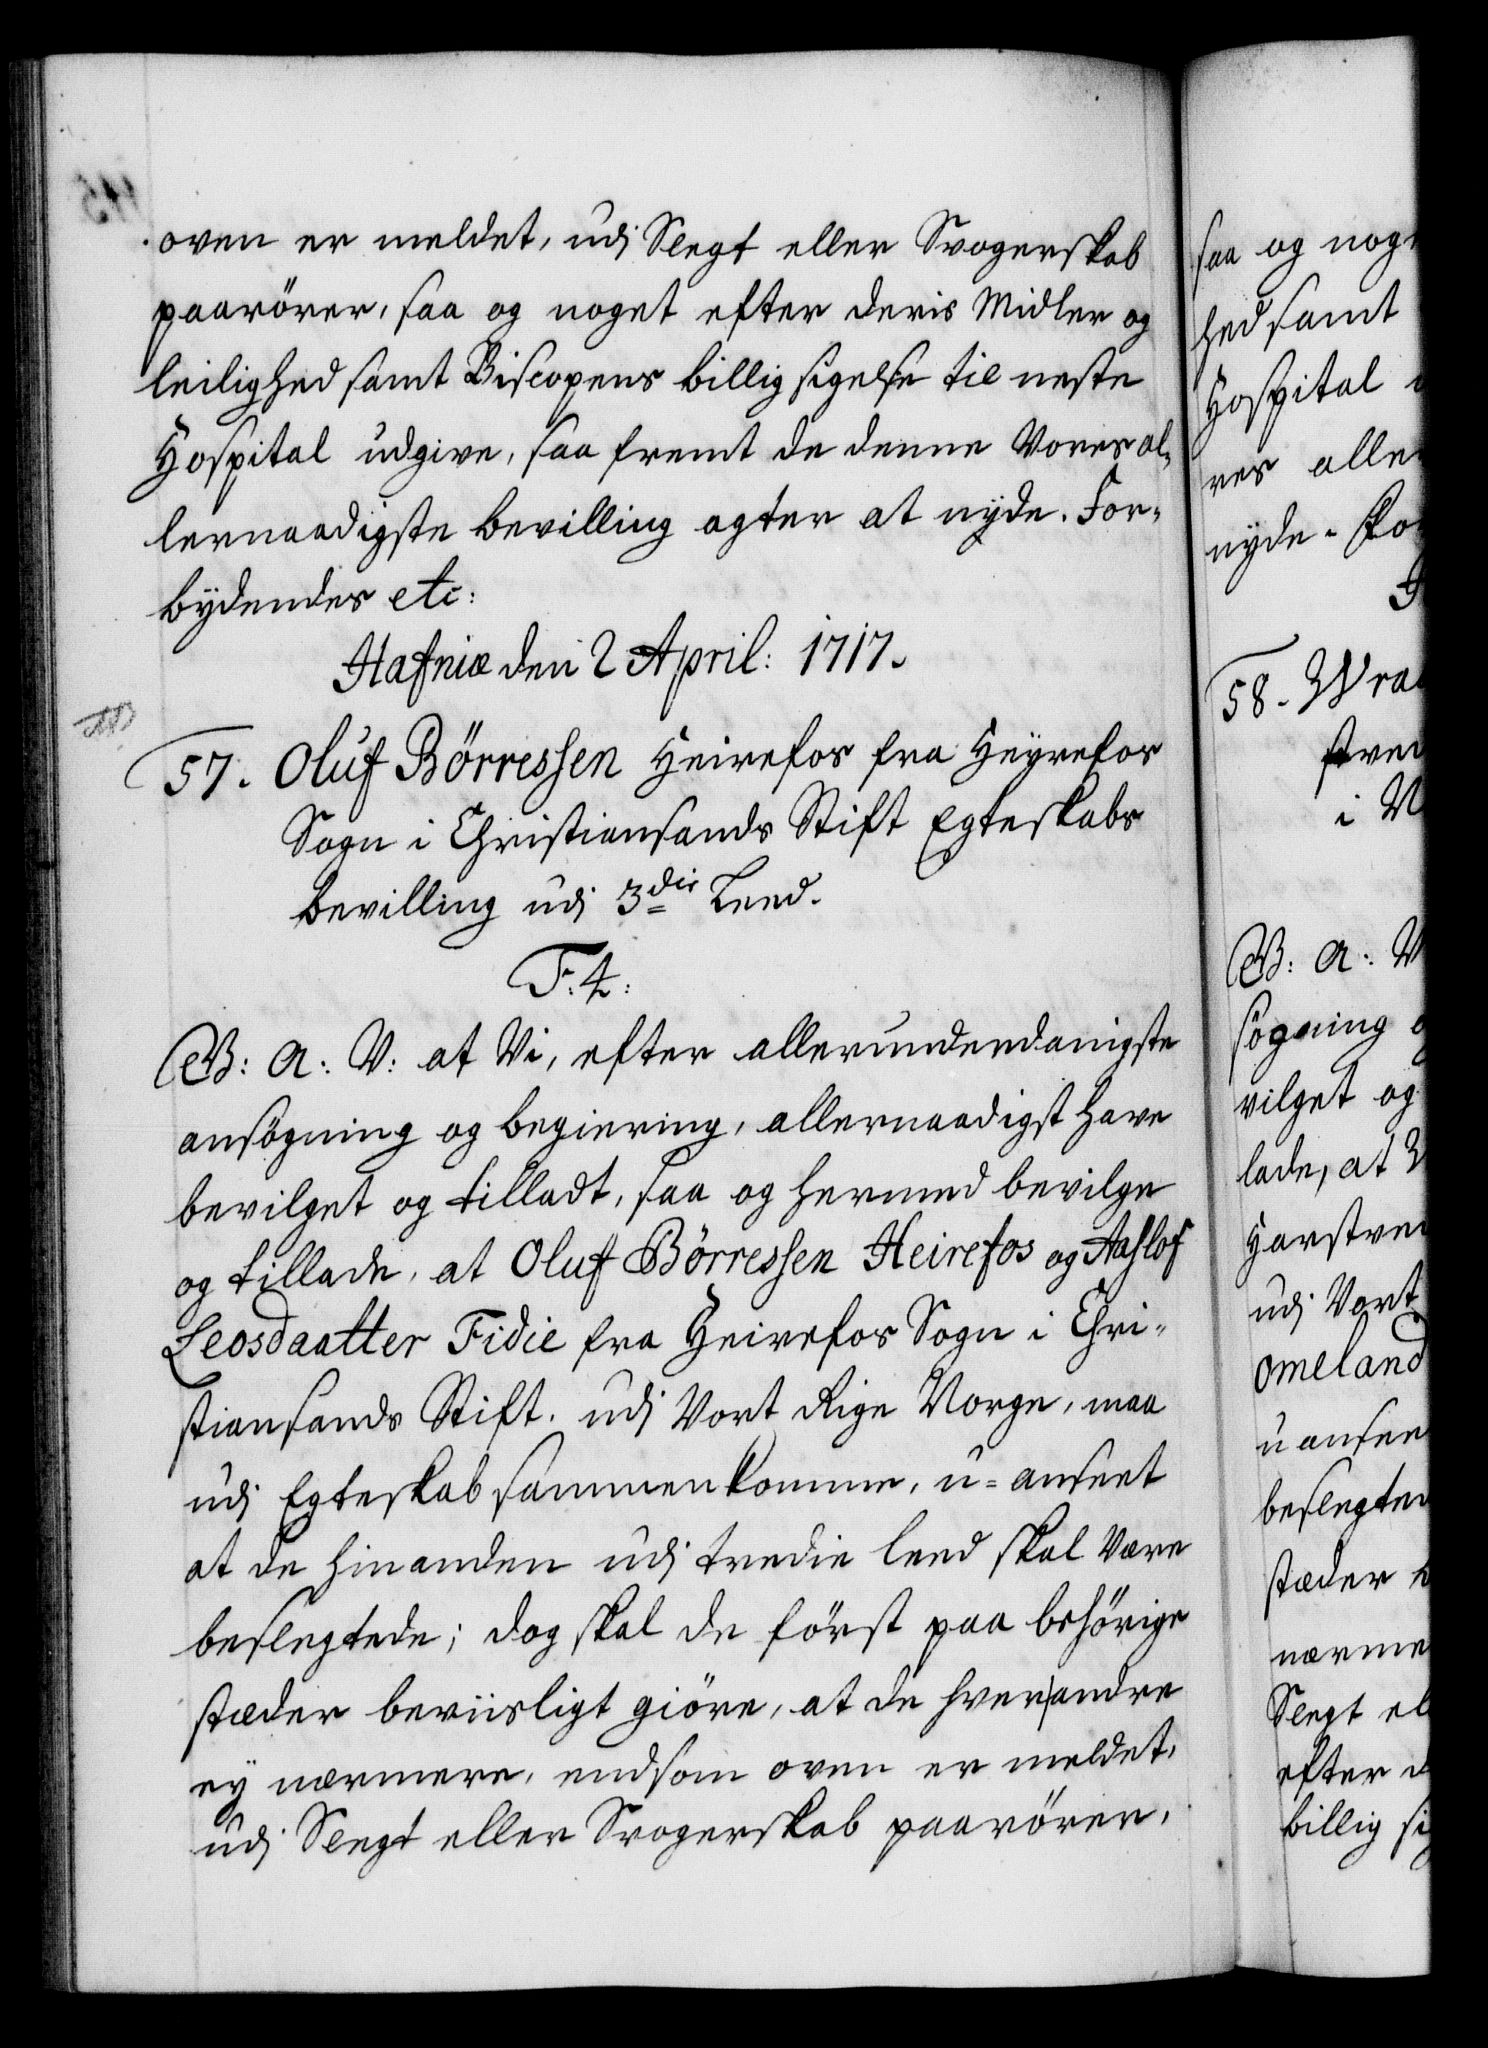 oven er meldet, udj Slegt eller Svogerskab
paarörer, saa og noget efter deris Midler og
leilighed samt Biscopens billig sigelse til neste
Hospital udgive, saa fremt de denne Vores al-
lernaadigste bevilling agter at nyde. For-
bydendes etc:
Hafniæ den 2 April: 1717.
57. Oluf Börressen Heirefos fra Heyrefos
Sogn i Christiansands Stift Egteskabs
bevilling udj 3die Leed.
F: 4:
G: A: V: at Vi, efter allerunderdanigste
ansögning og begiering, allernaadigst have
bevilget og tilladt, saa og hermed bevilge
og tillade, at Oluf Börressen Heirefos og Aaslof
Leosdaatter Fidie fra Heirefos Sogn i Chri-
stiansands Stift. udj Vort Rige Norge, maa
udj Egteskab sammenkomme, u-anseet
at de hinanden udj tredie leed skal være
beslegtede; dog skal de först paa behörige
stæder beviisligt giöre, at de hverandre
ey nærmere, endsom oven er meldet,
udj Slegt eller Svogerskab paarörer,
saa og nog
hed samt
Hospital
res aller
nyde.
58.
i
G: A: V
sögning
vilget og
lade, at
udj Vort
omeland
uansee
beslegte
stæder
nærme
Slegt el
efter d
billig si